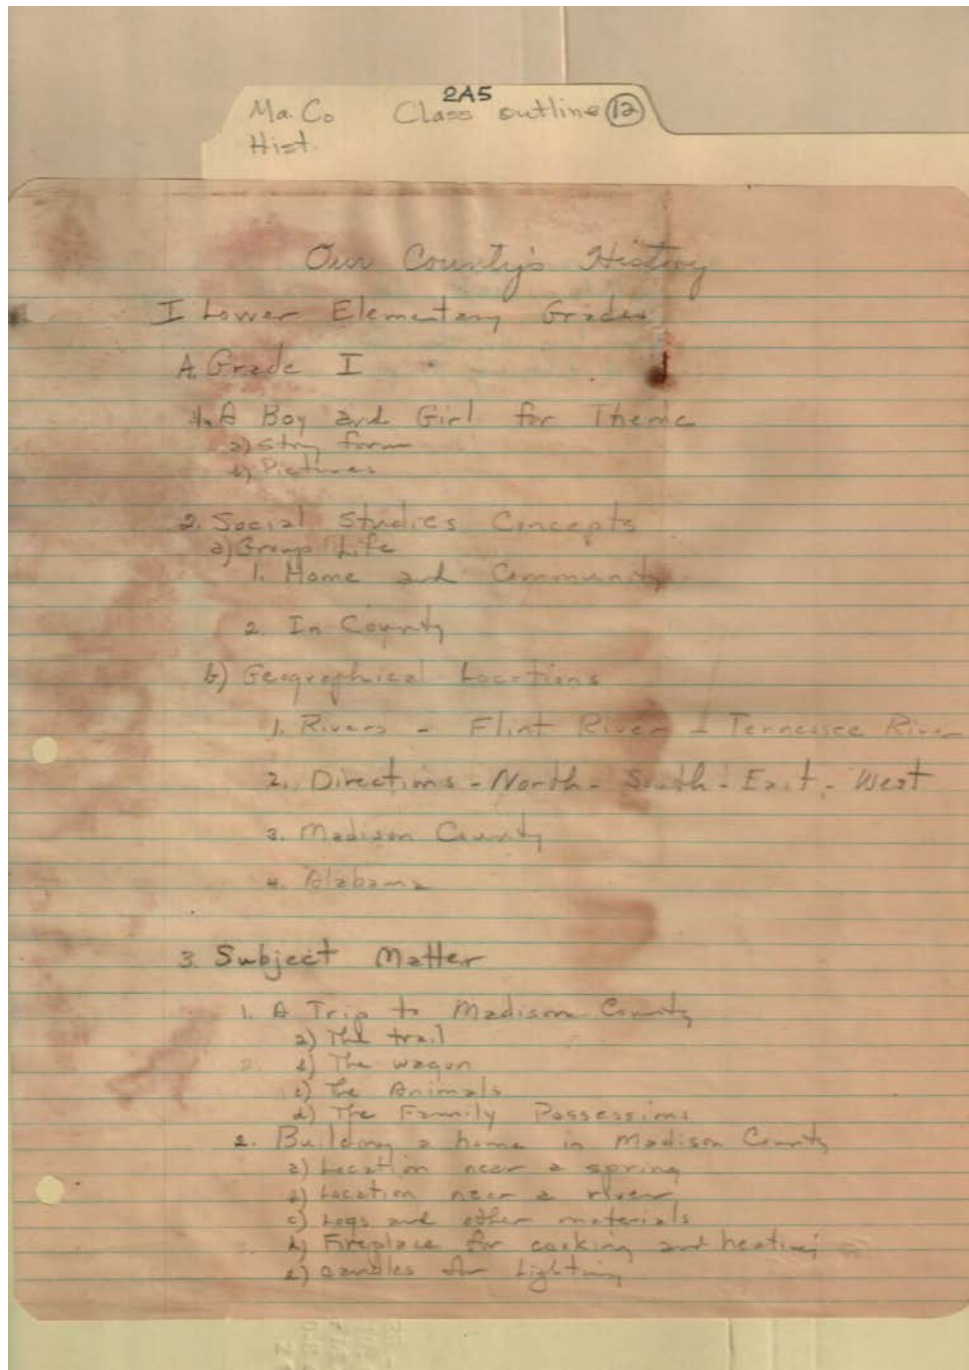 2A5
Ma. Co Class outline 12
Hist.
Our County's History
I Lower Elementary Grades
A. Grade I
1. A Boy and Girl for Theme
a) Story form
b) Pictures
2. Social Studies Concepts
a) Group Life
1. Home and Community
2. In County
b) Geographical Locations
1. Rivers - Flint River - Tennessee River
2. Directions - North - South - East - West
3. Madison County
4. Alabama
3. Subject Matter
1. A Trip to Madison County
a) The trail
b) The wagon
c) The Animals
d) The Family Possessions
2. Building a home in Madison County
a) Location near a spring
b) Location near a river
c) Logs and other materials
d) Fireplace for cooking and heating
e) Candles for Lighting